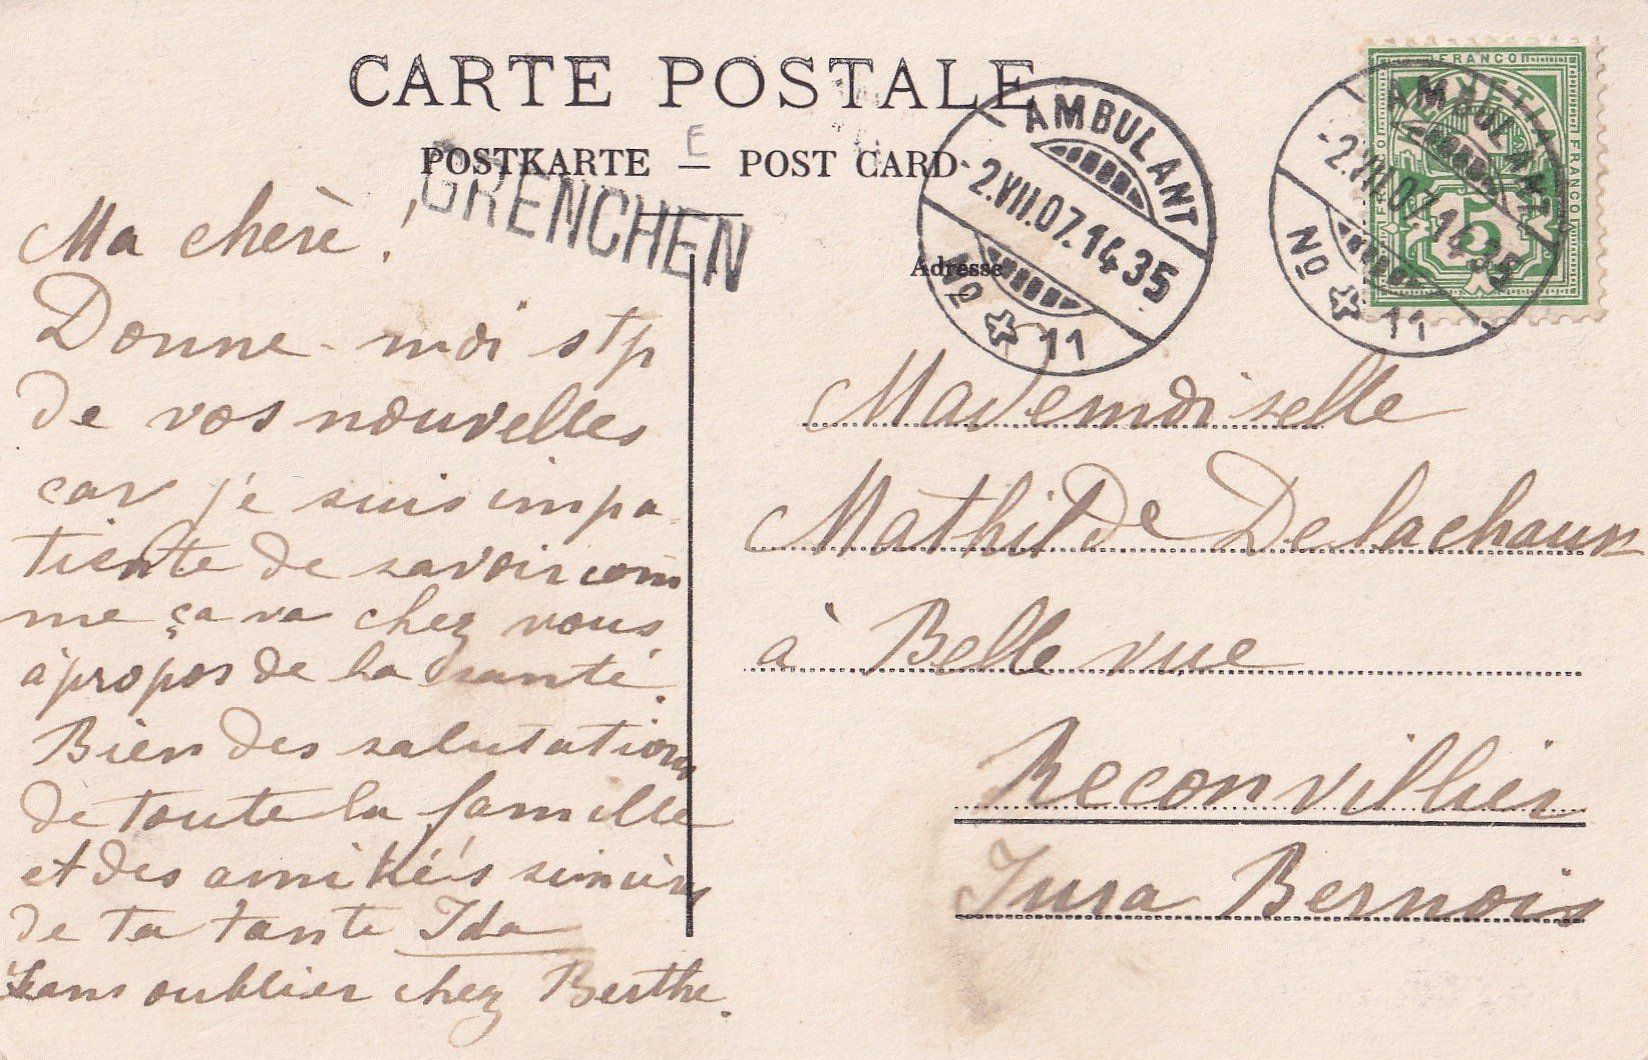 CARTE POSTALE
POSTKARTE — POST CARD
E
GRENCHEN
Adresse
AMBULANT
-2.VII.07.1435
No 11
AMBULANT
-2.VII.07.1435
No 11
FRANCO
HELVETIA
FRANCO
FRANCO
5
Ma chère !
Donne-moi stp
de vos nouvelles
car j'e suis impa
tiente de savoir com
me ça va chez vous
à propos de la santé.
Bien des salutations
de toute la famille
et des amitiés sincères
de ta tante Ida
Sans oublier chez Berthe.
Mademoiselle
Mathilde Delachaux
à Belle vue
Reconvillier
Jura Bernois